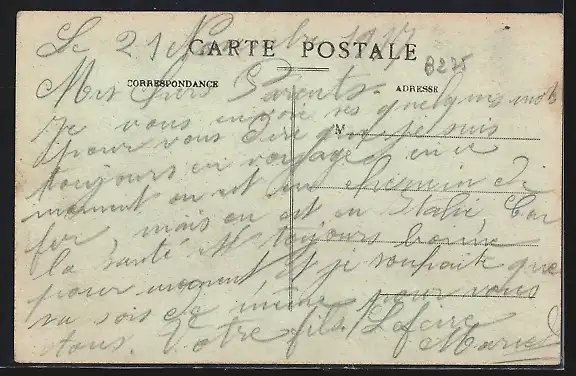 Le 21 Novembre 1917
CARTE POSTALE
B275
CORRESPONDANCE
ADRESSE
Mes Chers Parents.
Je vous envoie ses quelques mots
M
pour vous dire que je suis
toujours en voyage en ce
moment on est en Chemin de
fer mais on est en Italie, Car
la santé est toujours bonne
pour moment et je souhaite que
sa sois de même pour vous
tous. Votre fils. Lefevre
Marcel